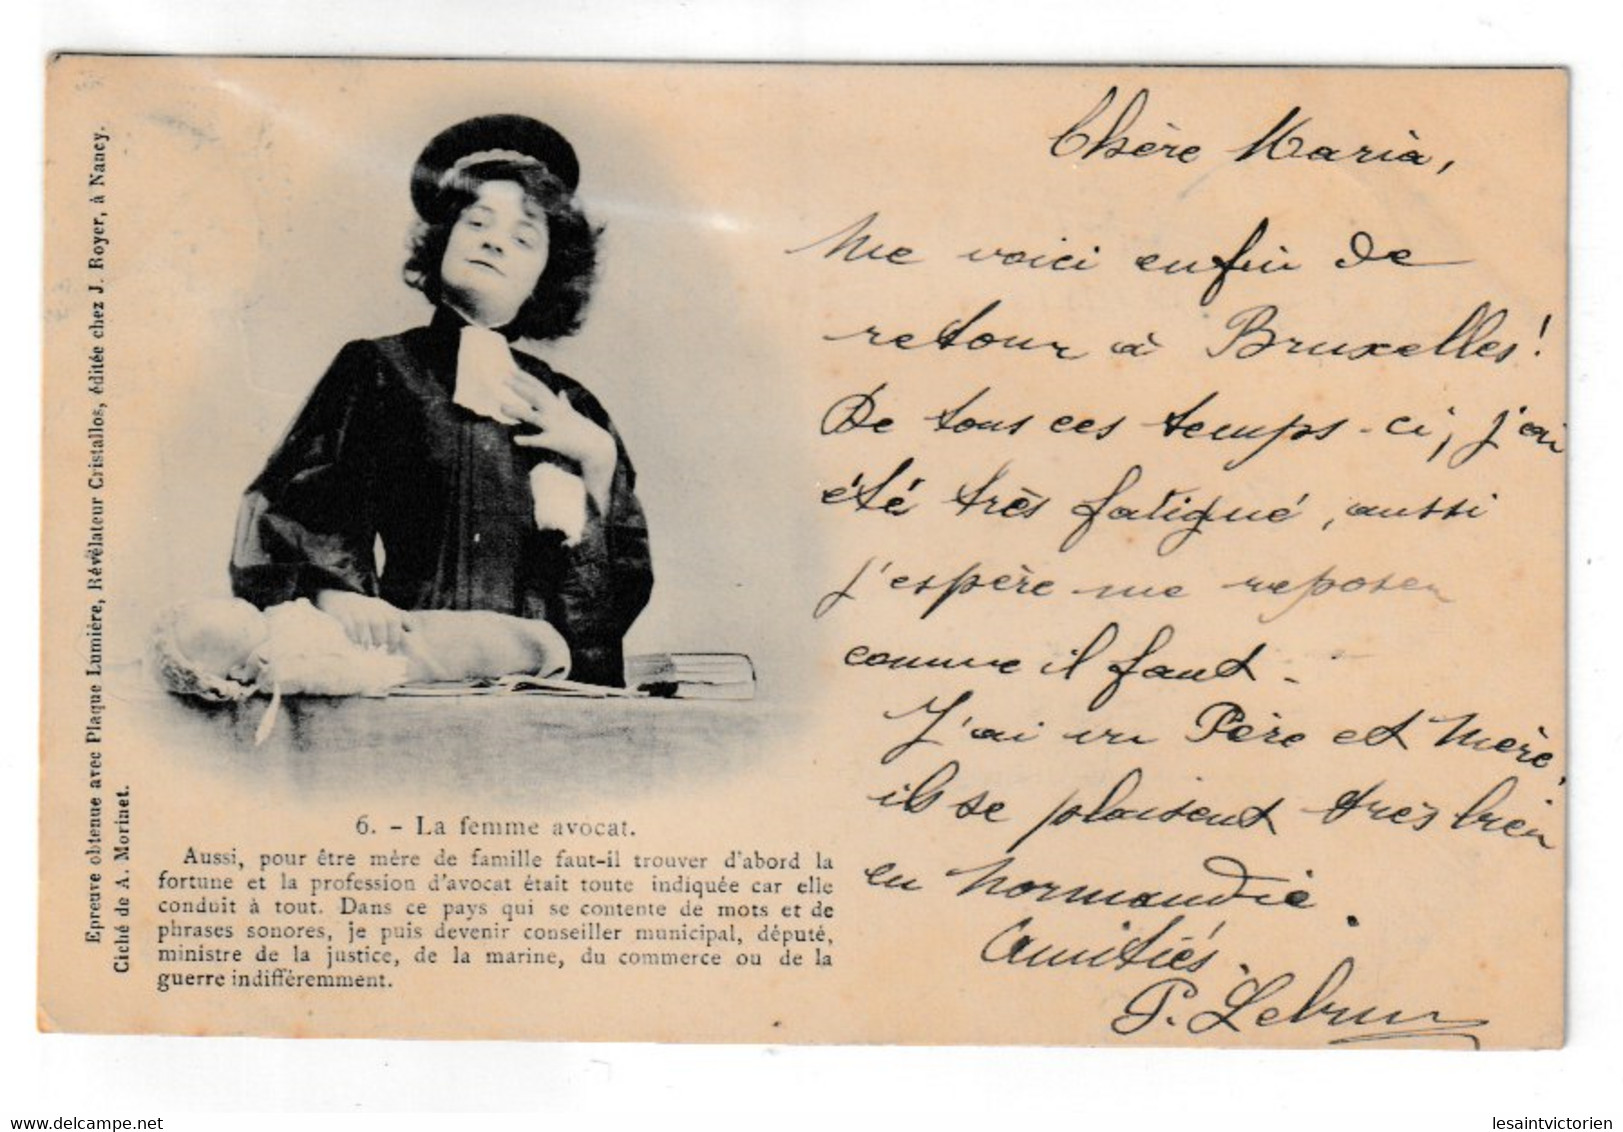 Epreuve obtenue avec Plaque Lumière, Révélateur Cristallos, éditée chez J. Royer, à Nancy.
Ciché de A. Morinet.
6. - La femme avocat.
Aussi, pour être mère de famille faut-il trouver d'abord la
fortune et la profession d'avocat était toute indiquée car elle
conduit à tout. Dans ce pays qui se contente de mots et de
phrases sonores, je puis devenir conseiller municipal, député,
ministre de la justice, de la marine, du commerce ou de la
guerre indifféremment.
Chère Maria,
Me voici enfin de
retour à Bruxelles!
De tous ces temps-ci, j'ai
été très fatigué, aussi
j'espère me reposer
comme il faut.
J'ai vu Père et Mère,
ils se plaisent très bien
en Normandie.
Amitiés.
P. Lebrun
delcampe.net
lesaintvictorien